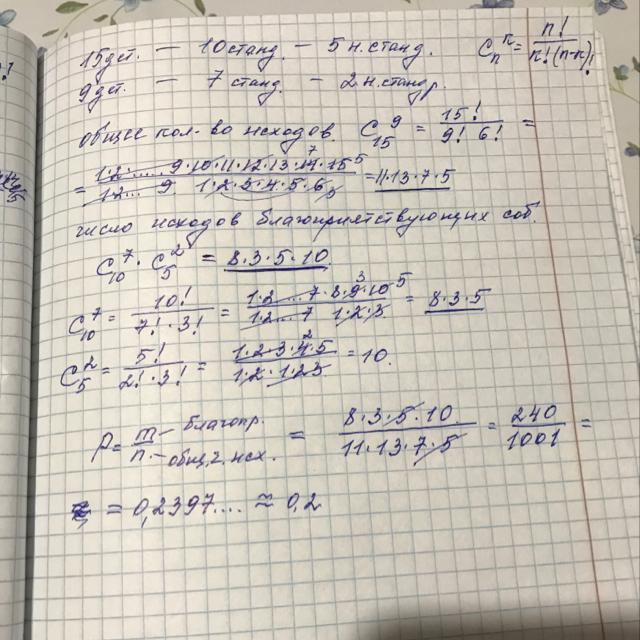 15дет. — 10 станд. — 5 н.станд. C_n^k = n! / k!(n-k)!
9дет. — 7 станд. — 2 н.стандр.
общее кол-во исходов. C_15^9 = 15! / 9! 6! =
= 1·2·.....·9·10·11·12·13·14·15 / 1·2...·9 1·2·3·4·5·6 = 11·13·7·5
число исходов благоприятствующих соб.
C_10^7 · C_5^2 = 8·3·5·10
C_10^7 = 10! / 7!·3! = 1·2·...·7·8·9·10 / 1·2...·7 1·2·3 = 8·3·5
C_5^2 = 5! / 2!·3! = 1·2·3·4·5 / 1·2·1·2·3 = 10.
P = m/n — благопр. — общ.ч.исх. = 8·3·5·10 / 11·13·7·5 = 240 / 1001 =
= 0,2397.... ≈ 0,2